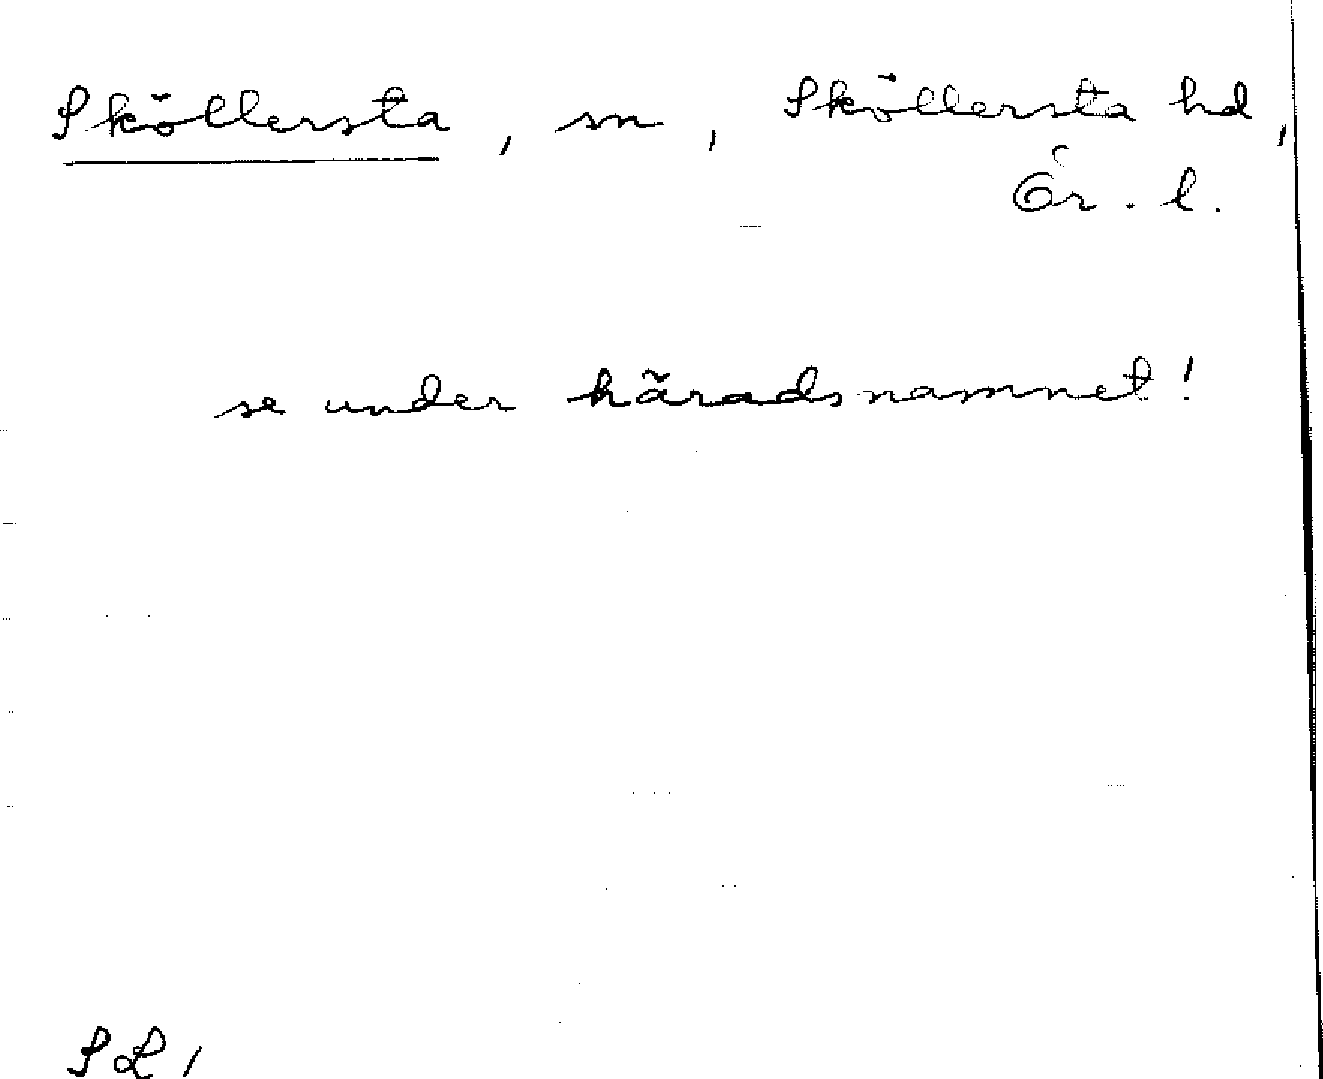 Sköllersta, sn, Sköllersta hd,
Ör. l.
se under häradsnamnet!